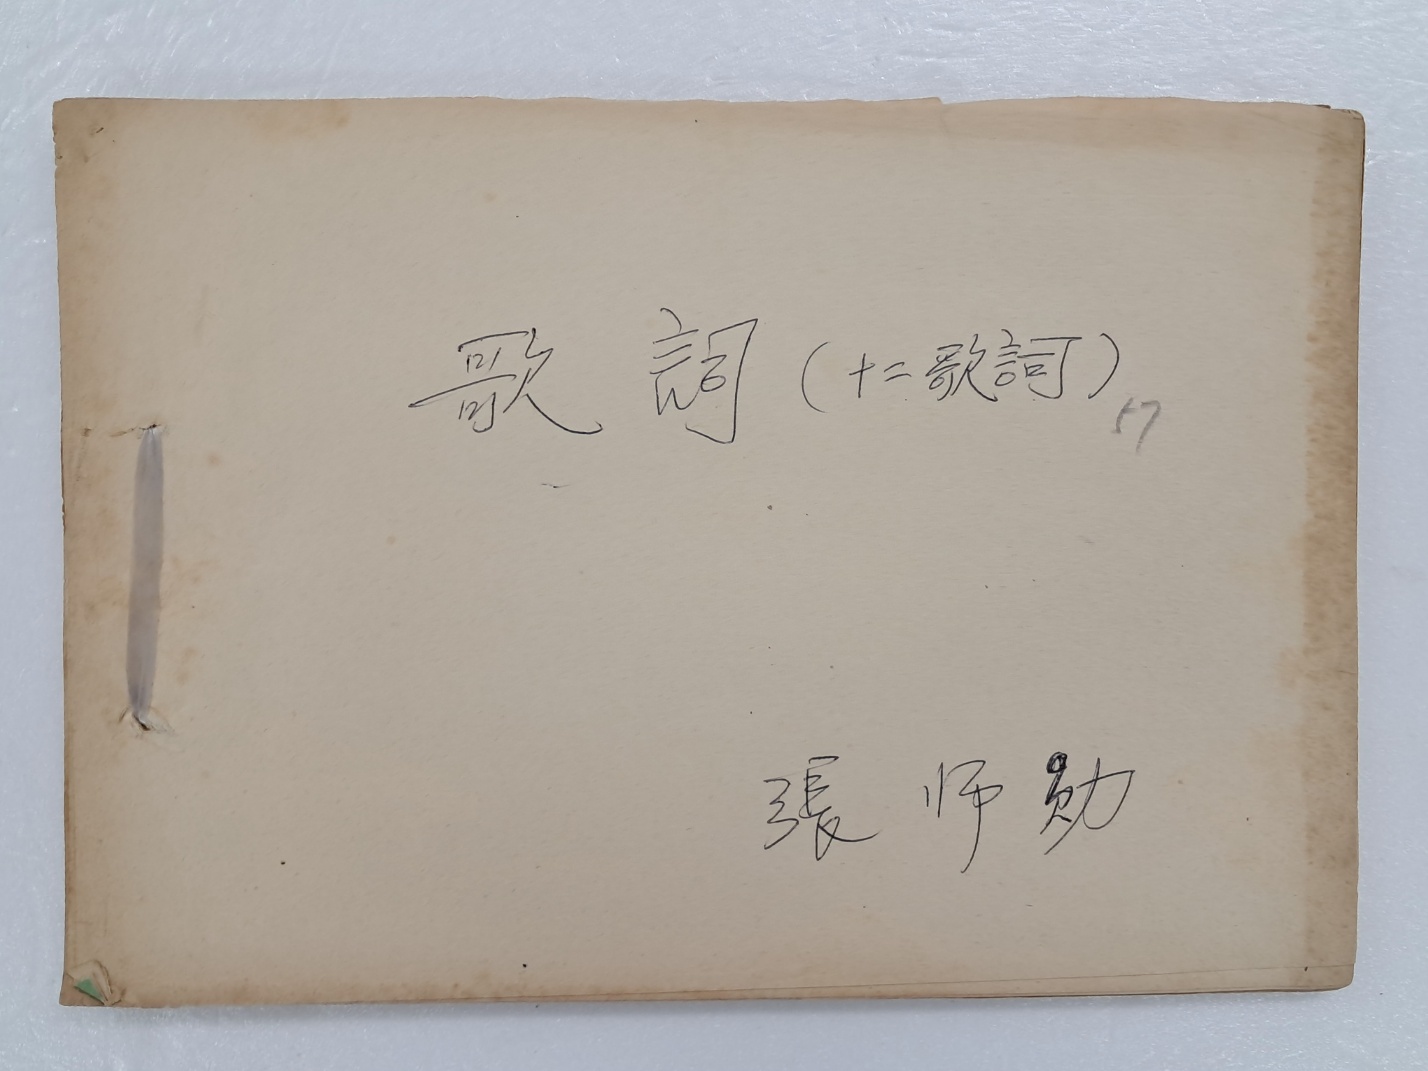 歌詞(十二歌詞)
57
張师勛